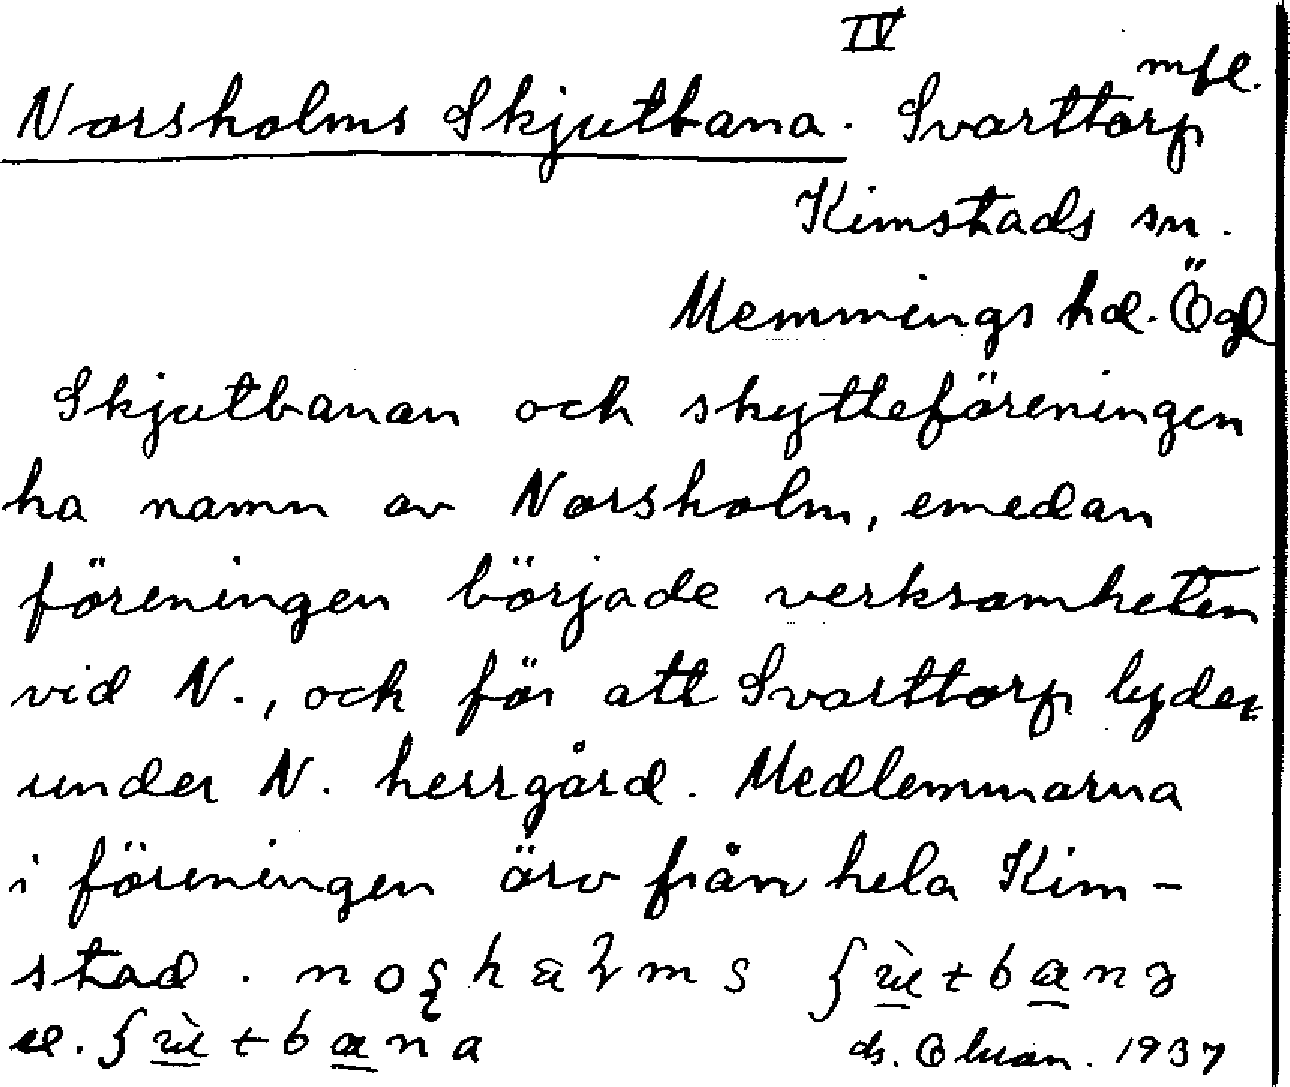 IV
mfl.
Norsholms Skjutbana. Svarttorp
Kimstads sn.
Memmings hd. Ögl
Skjutbanan och skytteföreningen
ha namn av Norsholm, emedan
föreningen började verksamheten
vid N., och för att Svarttorp lyder
under N. herrgård. Medlemmarna
i föreningen äro från hela Kim-
stad.
el.
ds. 1937